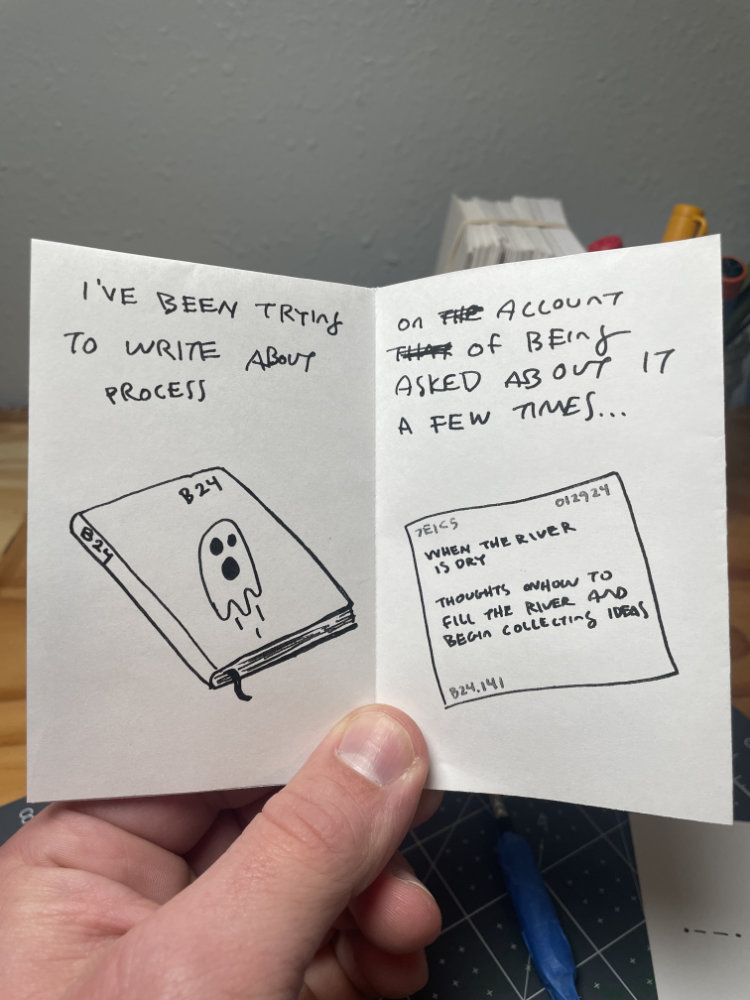 I'VE BEEN TRYING
TO WRITE ABOUT
PROCESS
B24
B24
ON THE ACCOUNT
THAT OF BEING
ASKED ABOUT IT
A FEW TIMES...
012924
WHEN THE RIVER
IS DRY
THOUGHTS ON HOW TO
FILL THE RIVER AND
BEGIN COLLECTING IDEAS
B24.141
8